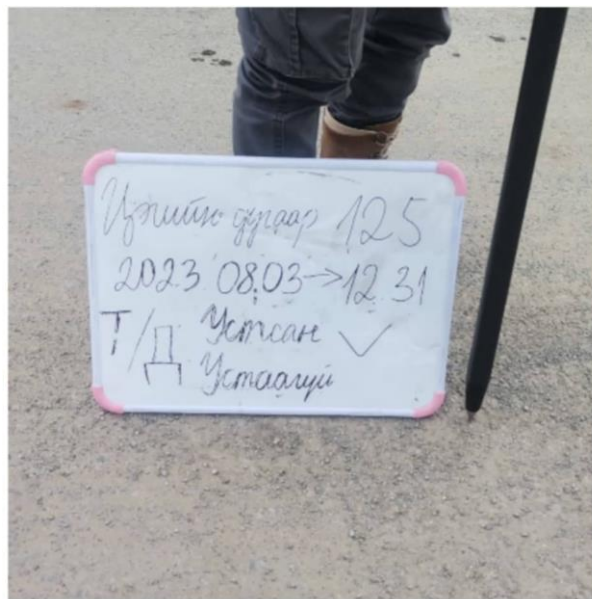 Цэгийн дугаар 125
2023 08.03→12.31
Т/Д Устсан ✓
Устаагүй